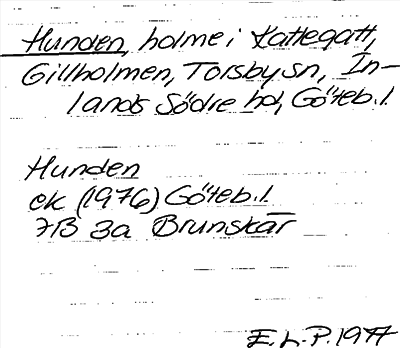 Hunden, holme i Kattegatt,
Gillholmen, Torsby sn, In-
lands Södre hd, Göteb. l.
Hunden
ek (1976) Göteb. l.
7B 3a Brunskär
E. L. P. 1977